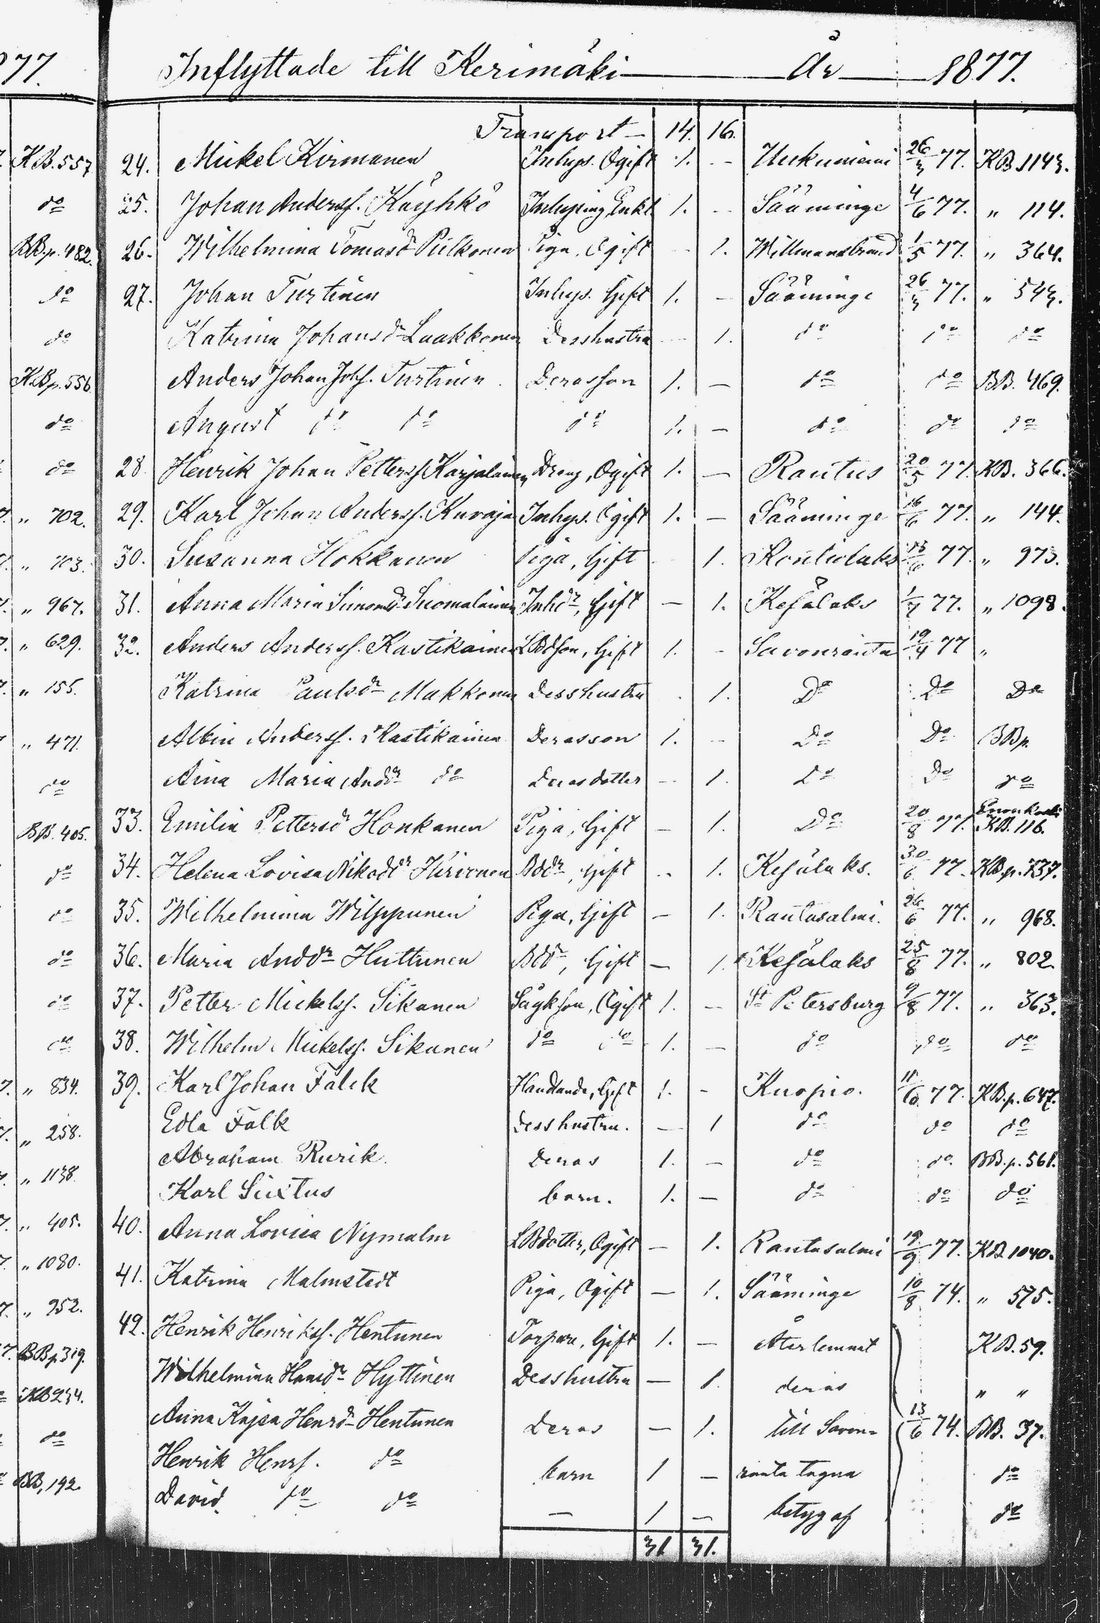 877.
K.B. 557
do
BB.p. 482.
do
do
K.B.p. 556
do
do
" 702.
" 703.
" 967.
" 629.
" 155.
" 471.
do
BB. 405.
do
do
do
do
do
" 834.
" 258.
" 1138.
" 405.
" 1080.
" 952.
BBp 319.
KB 234.
do
BB, 192.
Inflyttade till Kerimäki År 1877.
Transport 14. 16.
24. Mickel Kirmanen Inhys. Ogift 1. - 26/3 77. KB 1143.
25. Johan Anderss. Käyhkö Inhysing Enkl 1. - Sääminge 4/6 77. " 114.
26. Wilhelmina Tomasdr Pulkonen Piga, Ogift - 1. Willmanstrand 1/5 77. " 364.
27. Johan Turtinen Inhys. Gift 1. - Sääminge 26/3 77. " 543.
Katrina Johansdr Laakkonen Desshustru - 1. do do do
Anders Johan Johs. Turtinen Derasson 1. - do do BB. 469.
August do do do 1. - do do do
28. Henrik Johan Petterss. Karjalainen Dreng, Ogift 1. - Rautus 20/5 77. KB. 366.
29. Karl Johan Anderss. Kuraja Inhys. Ogift 1. - Sääminge 16/6 77. " 144.
30. Susanna Hokkanen Piga, Gift - 1. Kontiolaks 13/6 77. " 973.
31. Anna Maria Simonsdr Suomalainen Inhdr, Gift - 1. Kesälaks 1/7 77. " 1098.
32. Anders Anderss. Kastikainen LBdson, Gift 1. - Savonranta 19/4 77 "
Katrina Paulsdr Makkonen Desshustru - 1. Do Do Do
Albin Anderss. Kastikainen Derasson 1. - Do Do BBp.
Aina Maria Anddr do Derasdotter - 1. Do Do do
33. Emilia Pettersdr Honkanen Piga, Gift - 1. Do 20/8 77. Enonkoski KB. 116.
34. Helena Lovisa Nikodr Hirvonen Bddr, Gift - 1. Kesälaks. 30/6 77. KB.p. 737.
35. Wilhelmina Wilppunen Piga, Gift - 1. Rantasalmi. 26/6 77. " 968.
36. Maria Anddr Huttunen Bdr, Gift - 1. Kesälaks 25/8 77. " 802
37. Petter Mickelss. Sikanen Sågkson, Ogift 1. - St Petersburg 9/8 77. " 363.
38. Wilhelm Mickelss. Sikanen do do 1. - do do do
39. Karl Johan Falck Handlande, Gift 1. - Kuopio. 11/6 77. KB.p. 647.
Edla Falk Desshustru. - 1 do do do
Abraham Rurik. Deras 1. - do do BB.p. 561.
Karl Sixtus barn. 1. - do do do
40. Anna Lovisa Nymalm LBdotter, Ogift - 1. Rantasalmi 19/9 77. KB. 1040.
41. Katrina Malmstedt Piga, Ogift - 1. Sääminge 10/8 74. " 575.
42. Henrik Henrikss. Hentunen Torpare, Gift 1. - Återlemnat KB. 59.
Wilhelmina Hansdr Hyttinen Desshustru - 1. deras " "
Anna Kajsa Henrdr Hentunen Deras - 1. till Savon= 13/6 74. BB. 37.
Henrik Henrs. do barn 1 - ranta tagna do
David do do - 1 - betyg af do
31 31.